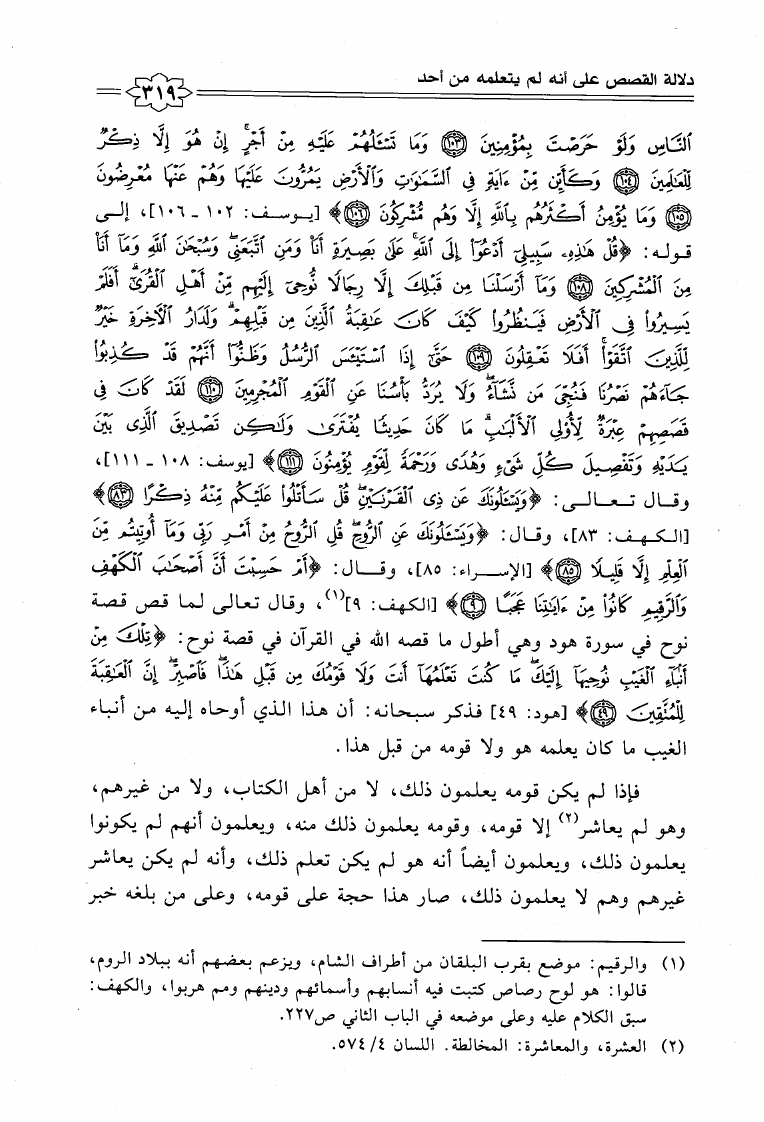 دلالة القصص على أنه لم يتعلمه من أحد
٣١٩
ٱلنَّاسِ وَلَوْ حَرَصْتَ بِمُؤْمِنِينَ ١٠٣ وَمَا تَسْـَٔلُهُمْ عَلَيْهِ مِنْ أَجْرٍ ۚ إِنْ هُوَ إِلَّا ذِكْرٌ
لِّلْعَٰلَمِينَ ١٠٤ وَكَأَيِّن مِّنْ ءَايَةٍ فِى ٱلسَّمَٰوَٰتِ وَٱلْأَرْضِ يَمُرُّونَ عَلَيْهَا وَهُمْ عَنْهَا مُعْرِضُونَ
١٠٥ وَمَا يُؤْمِنُ أَكْثَرُهُم بِٱللَّهِ إِلَّا وَهُم مُّشْرِكُونَ ١٠٦﴾ [يوسف: ١٠٢ ـ ١٠٦]، إلى
قوله: ﴿قُلْ هَٰذِهِۦ سَبِيلِىٓ أَدْعُوٓا۟ إِلَى ٱللَّهِ ۚ عَلَىٰ بَصِيرَةٍ أَنَا۠ وَمَنِ ٱتَّبَعَنِى ۖ وَسُبْحَٰنَ ٱللَّهِ وَمَآ أَنَا۠
مِنَ ٱلْمُشْرِكِينَ ١٠٨ وَمَآ أَرْسَلْنَا مِن قَبْلِكَ إِلَّا رِجَالًا نُّوحِىٓ إِلَيْهِم مِّنْ أَهْلِ ٱلْقُرَىٰٓ ۗ أَفَلَمْ
يَسِيرُوا۟ فِى ٱلْأَرْضِ فَيَنظُرُوا۟ كَيْفَ كَانَ عَٰقِبَةُ ٱلَّذِينَ مِن قَبْلِهِمْ ۗ وَلَدَارُ ٱلْءَاخِرَةِ خَيْرٌ
لِّلَّذِينَ ٱتَّقَوْا۟ ۗ أَفَلَا تَعْقِلُونَ ١٠٩ حَتَّىٰٓ إِذَا ٱسْتَيْـَٔسَ ٱلرُّسُلُ وَظَنُّوٓا۟ أَنَّهُمْ قَدْ كُذِبُوا۟
جَآءَهُمْ نَصْرُنَا فَنُجِّىَ مَن نَّشَآءُ ۖ وَلَا يُرَدُّ بَأْسُنَا عَنِ ٱلْقَوْمِ ٱلْمُجْرِمِينَ ١١٠ لَقَدْ كَانَ فِى
قَصَصِهِمْ عِبْرَةٌ لِّأُو۟لِى ٱلْأَلْبَٰبِ ۗ مَا كَانَ حَدِيثًا يُفْتَرَىٰ وَلَٰكِن تَصْدِيقَ ٱلَّذِى بَيْنَ
يَدَيْهِ وَتَفْصِيلَ كُلِّ شَىْءٍ وَهُدًى وَرَحْمَةً لِّقَوْمٍ يُؤْمِنُونَ ١١١﴾ [يوسف: ١٠٨ ـ ١١١]،
وقال تعالى: ﴿وَيَسْـَٔلُونَكَ عَن ذِى ٱلْقَرْنَيْنِ ۖ قُلْ سَأَتْلُوا۟ عَلَيْكُم مِّنْهُ ذِكْرًا ٨٣﴾
[الكهف: ٨٣]، وقال: ﴿وَيَسْـَٔلُونَكَ عَنِ ٱلرُّوحِ ۖ قُلِ ٱلرُّوحُ مِنْ أَمْرِ رَبِّى وَمَآ أُوتِيتُم مِّنَ
ٱلْعِلْمِ إِلَّا قَلِيلًا ٨٥﴾ [الإسراء: ٨٥]، وقال: ﴿أَمْ حَسِبْتَ أَنَّ أَصْحَٰبَ ٱلْكَهْفِ
وَٱلرَّقِيمِ كَانُوا۟ مِنْ ءَايَٰتِنَا عَجَبًا ٩﴾ [الكهف: ٩](١)، وقال تعالى لما قص قصة
نوح في سورة هود وهي أطول ما قصه الله في القرآن في قصة نوح: ﴿تِلْكَ مِنْ
أَنۢبَآءِ ٱلْغَيْبِ نُوحِيهَآ إِلَيْكَ ۖ مَا كُنتَ تَعْلَمُهَآ أَنتَ وَلَا قَوْمُكَ مِن قَبْلِ هَٰذَا ۖ فَٱصْبِرْ ۖ إِنَّ ٱلْعَٰقِبَةَ
لِلْمُتَّقِينَ ٤٩﴾ [هود: ٤٩] فذكر سبحانه: أن هذا الذي أوحاه إليه من أنباء
الغيب ما كان يعلمه هو ولا قومه من قبل هذا.
فإذا لم يكن قومه يعلمون ذلك، لا من أهل الكتاب، ولا من غيرهم،
وهو لم يعاشر(٢) إلا قومه، وقومه يعلمون ذلك منه، ويعلمون أنهم لم يكونوا
يعلمون ذلك، ويعلمون أيضاً أنه هو لم يكن تعلم ذلك، وأنه لم يكن يعاشر
غيرهم وهم لا يعلمون ذلك، صار هذا حجة على قومه، وعلى من بلغه خبر
(١) والرقيم: موضع بقرب البلقان من أطراف الشام، ويزعم بعضهم أنه ببلاد الروم،
قالوا: هو لوح رصاص كتبت فيه أنسابهم وأسمائهم ودينهم ومم هربوا، والكهف:
سبق الكلام عليه وعلى موضعه في الباب الثاني ص٢٢٧.
(٢) العشرة، والمعاشرة: المخالطة. اللسان ٥٧٤/٤.